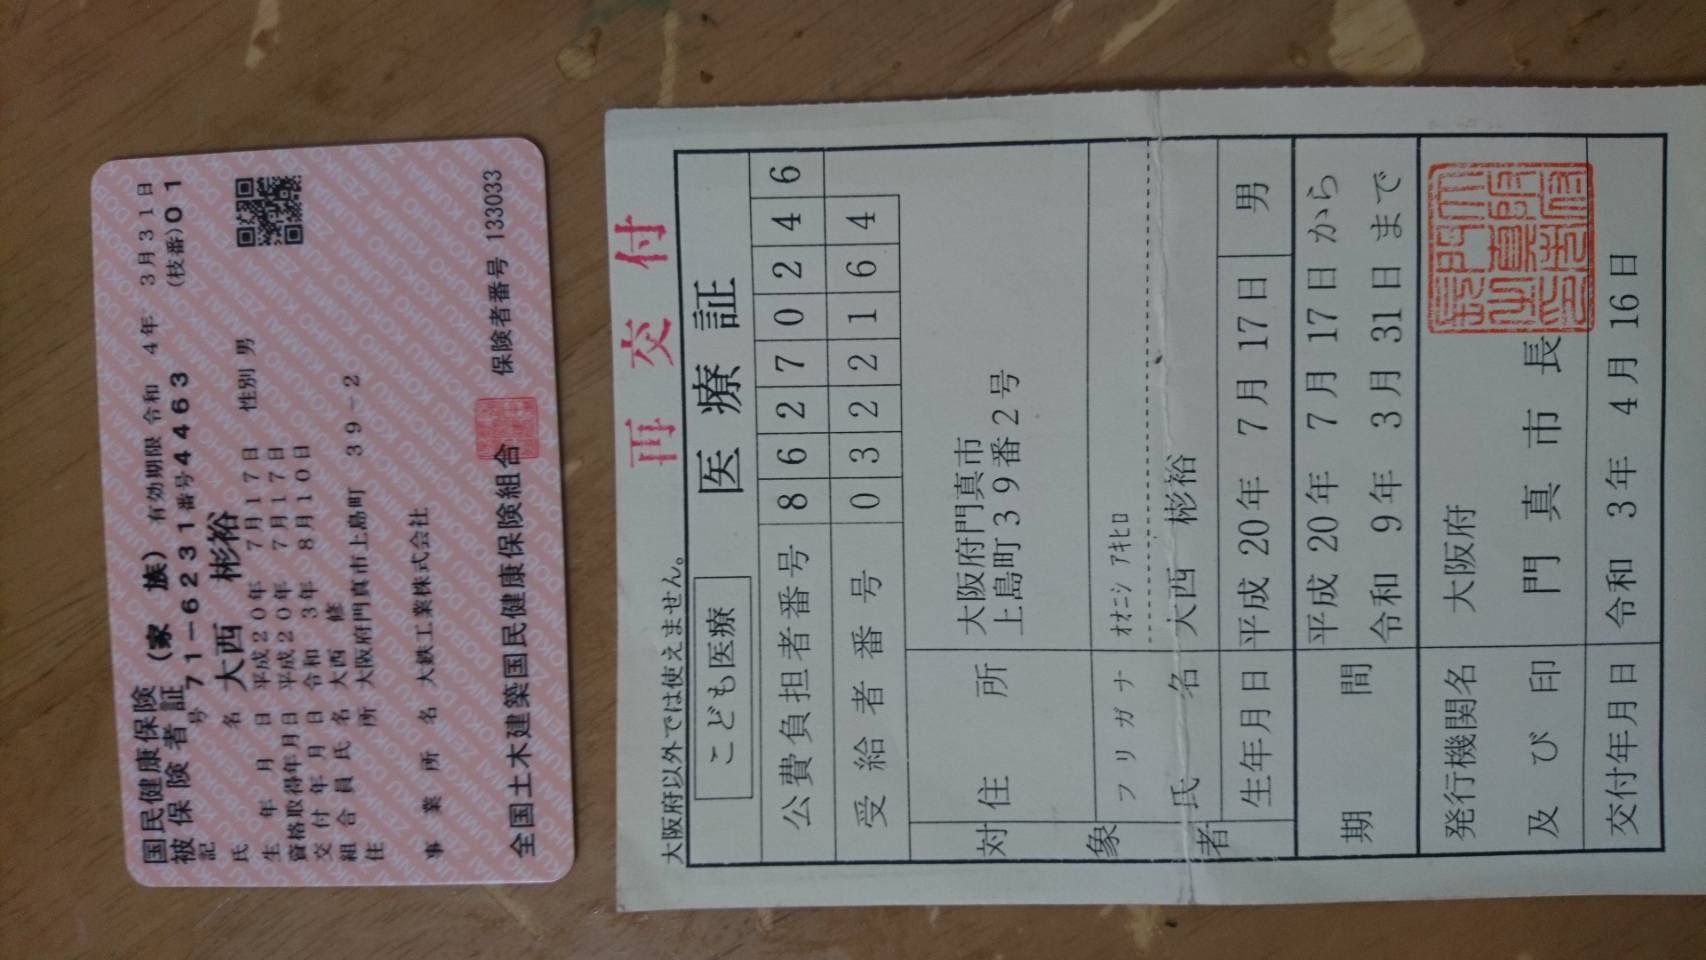 国民健康保険 (家 族) 有効期限 令和 4年 3月31日
被保険者証
記号 71-6231 番号 4463 (枝番)01
氏 名 大西 彬裕
生 年 月 日 平成20年 7月17日 性別 男
資格取得年月日 平成20年 7月17日
交 付 年 月 日 令和 3年 8月10日
組 合 員 氏 名 大西 修
住 所 大阪府門真市上島町 39-2
事 業 所 名 大鉄工業株式会社
全国土木建築国民健康保険組合 保険者番号 133033
再交付
大阪府以外では使えません。
こども医療 医療証
公費負担者番号 8 6 2 7 0 2 4 6
受給者番号 0 3 2 2 1 6 4
対象者
住 所 大阪府門真市
上島町39番2号
フリガナ オオニシ アキヒロ
氏 名 大西 彬裕
生年月日 平成 20年 7月 17日 男
期 間 平成 20年 7月 17日 から
令和 9年 3月 31日 まで
発行機関名 大阪府
及び印 門真市長
交付年月日 令和 3年 4月 16日